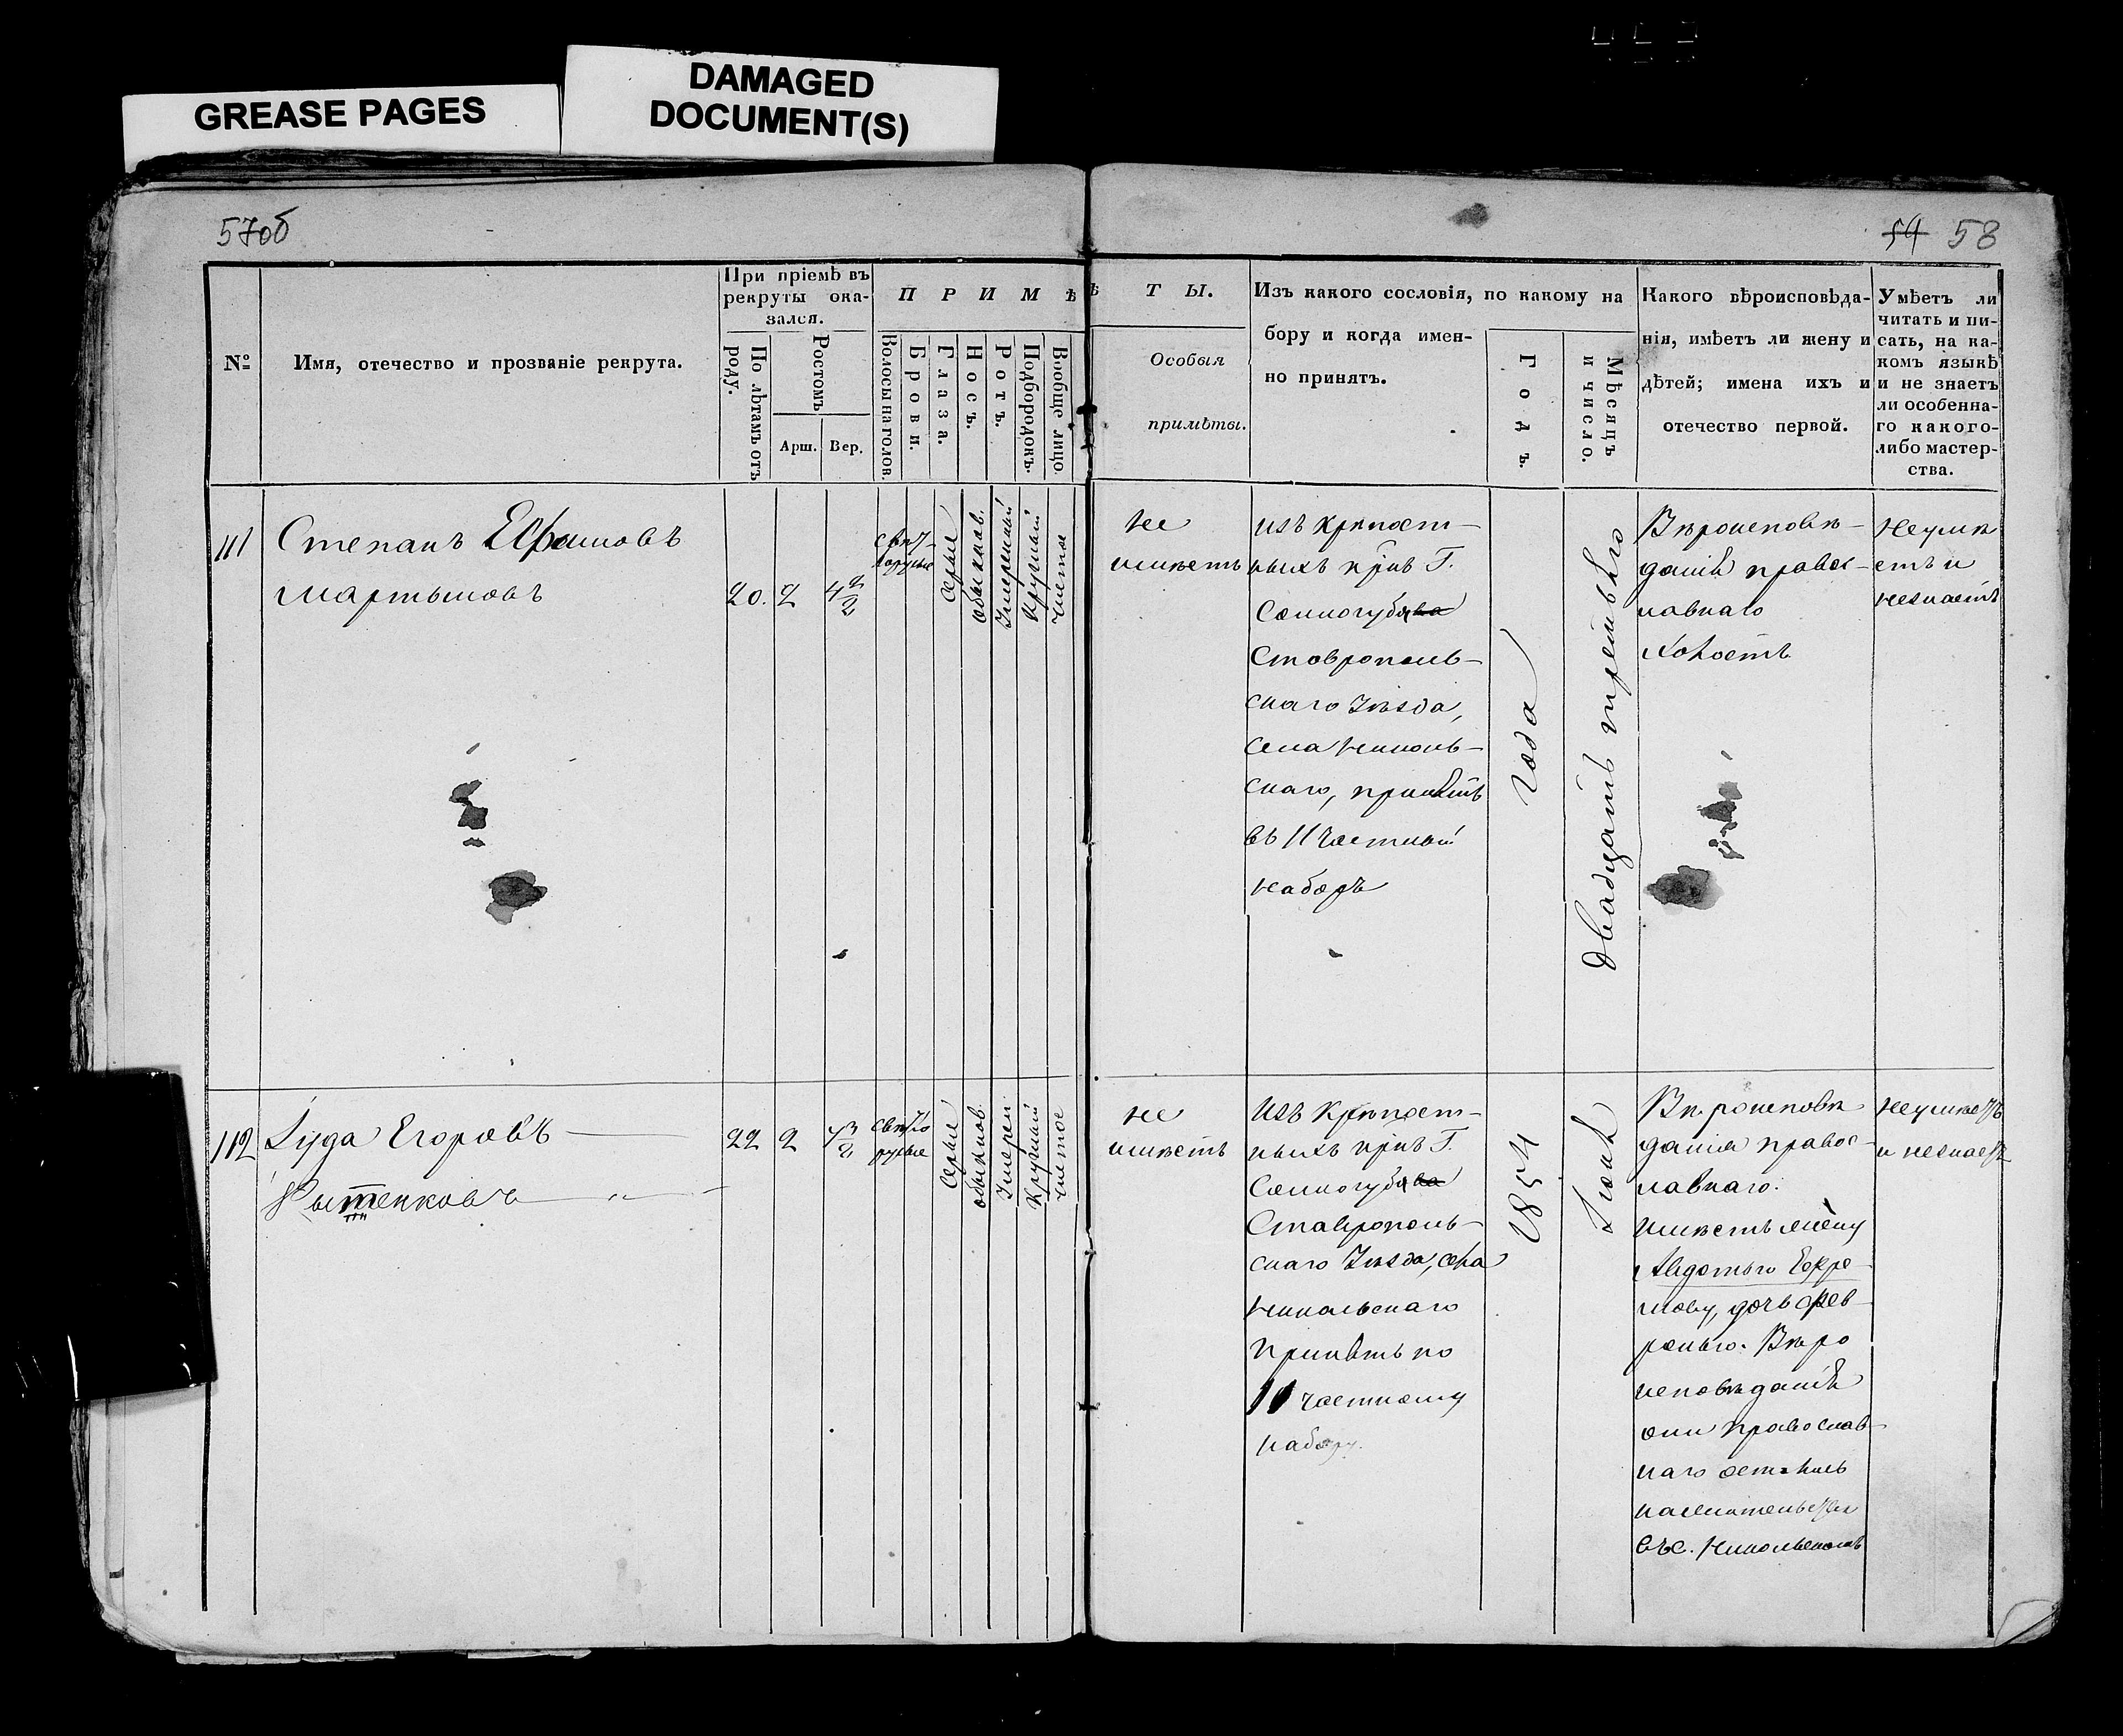 GREASE PAGES
DAMAGED
DOCUMENT(S)
57об
59 58
№
Имя, отечество и прозваніе рекрута.
При пріемѣ въ
рекруты ока-
зался.
По лѣтамъ отъ
роду.
Ростомъ
Арш.
Вер.
ПРИМѢ
Волосы на голов.
Брови.
Глаза.
Носъ.
Ротъ.
Подбородокъ.
Вообще лицо.
ѢТЫ.
Особыя
примѣты.
Изъ какого сословія, по какому на
бору и когда имен-
но принятъ.
Годъ.
Мѣсяцъ
и число.
Какого вѣроисповѣда-
нія, имѣетъ ли жену и
дѣтей; имена ихъ и
отечество первой.
Умѣетъ ли
читать и пи-
сать, на ка-
комъ языкѣ
и не знаетъ
ли особенна-
го какого-
либо мастер-
ства.
111
Степанъ Ефимовъ
Мартыновъ
20. 2 4 2/2
свѣт-
лорусые
Серые
обыкнов.
Умеренный
Круглый
чистое
не
имѣетъ
изъ крѣпост-
ныхъ крѣн Г.
Самогуб
Ставрополь-
скаго Уѣзда,
села Николь-
скаго, принятъ
въ 11 частный
наборъ
года
двадцать третьяго
Вѣроисповѣ-
данія правос-
лавнаго
Холостъ
Неумѣ
етъ и
незнаетъ
112
Луда Егоровъ
Рытенковъ
22 2 4 3/2
свѣтло
русые
Серые
обыкнов.
Умерен.
Круглый
чистое
не
имѣетъ
Изъ Крѣпост-
ныхъ крѣн Г.
Самогуб
Ставрополь-
скаго Уѣзда, села
Никольскаго
Принятъ по
11 частному
набору.
1854
Вѣроисповѣ
данія правос-
лавнаго.
имѣетъ жену
Авдотью Ефре
мову, дочь Фев-
ронью. Вѣро
исповѣданія
они православ-
наго остались
на жительствѣ
въ с. Никольскомъ
Неумѣетъ
и незнаетъ